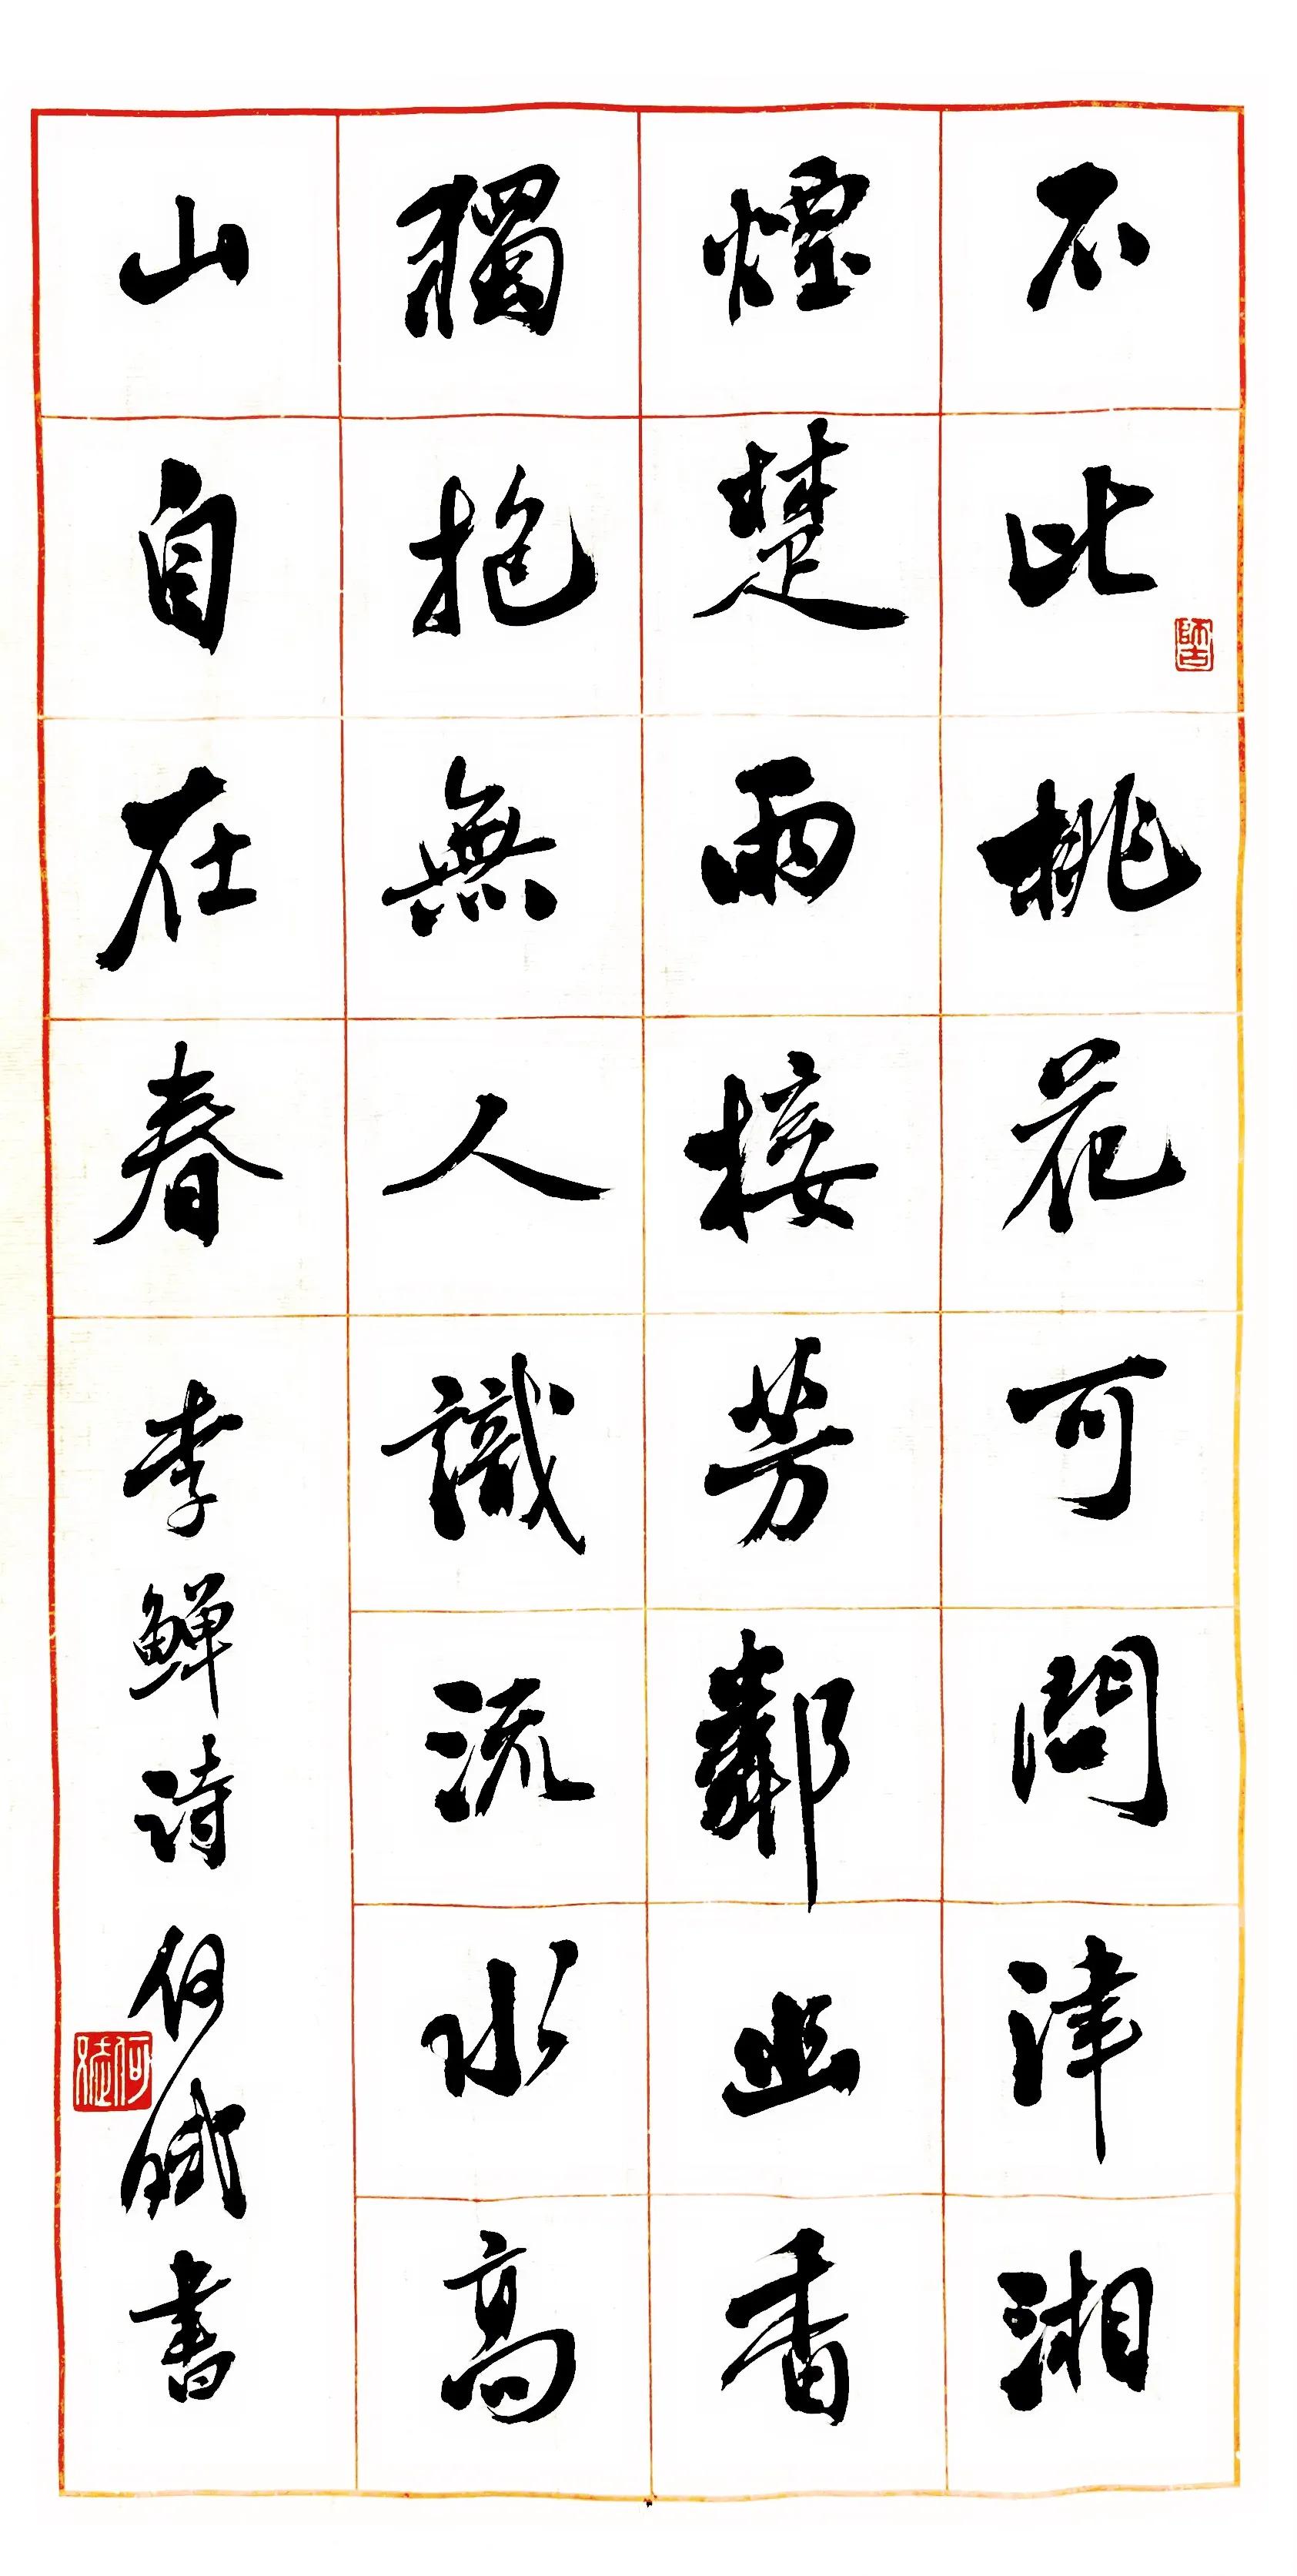 不比桃花可問津湘
煙楚雨接芳鄰幽香
獨抱無人識流水高
山自在春
李鱓詩何斌書
師古